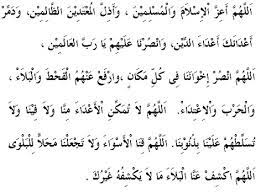 اَللّٰهُمَّ أَعِزَّ الْإِسْلَامَ وَالْمُسْلِمِيْنَ ، وَأَذِلَّ الْمُعْتَدِيْنَ الظَّالِمِيْنَ، وَدَمِّرْ
أَعْدَائَكَ أَعْدَاءَ الدِّيْنِ، وَانْصُرْنَا عَلَيْهِمْ يَا رَبَّ الْعَالَمِيْنَ ،
اَللّٰهُمَّ انْصُرْ إِخْوَانَنَا فِى كُلِّ مَكَانٍ ،وارْفَعْ عَنْهُمُ الْقَحْطَ وَالْبَلَاءَ ،
وَالْحَرْبَ وَالْاِعْتِدَاءَ. اَللّٰهُمَّ لَا تُمَكِّنِ الْأَعْدَاءَ مِنَّا وَلَا فِيْنَا وَلَا
تُسَلِّطْهُمْ عَلَيْنَا بِذُنُوْبِنَا. اَللّٰهُمَّ قِنَا الْأَسْوَاءَ وَلَا تَجْعَلْنَا مَحَلًّا لِلْبَلْوَى
اَللّٰهُمَّ اكْشِفْ عَنَّا الْبَلَاءَ مَا لَا يَكْشِفُهُ غَيْرُكَ .